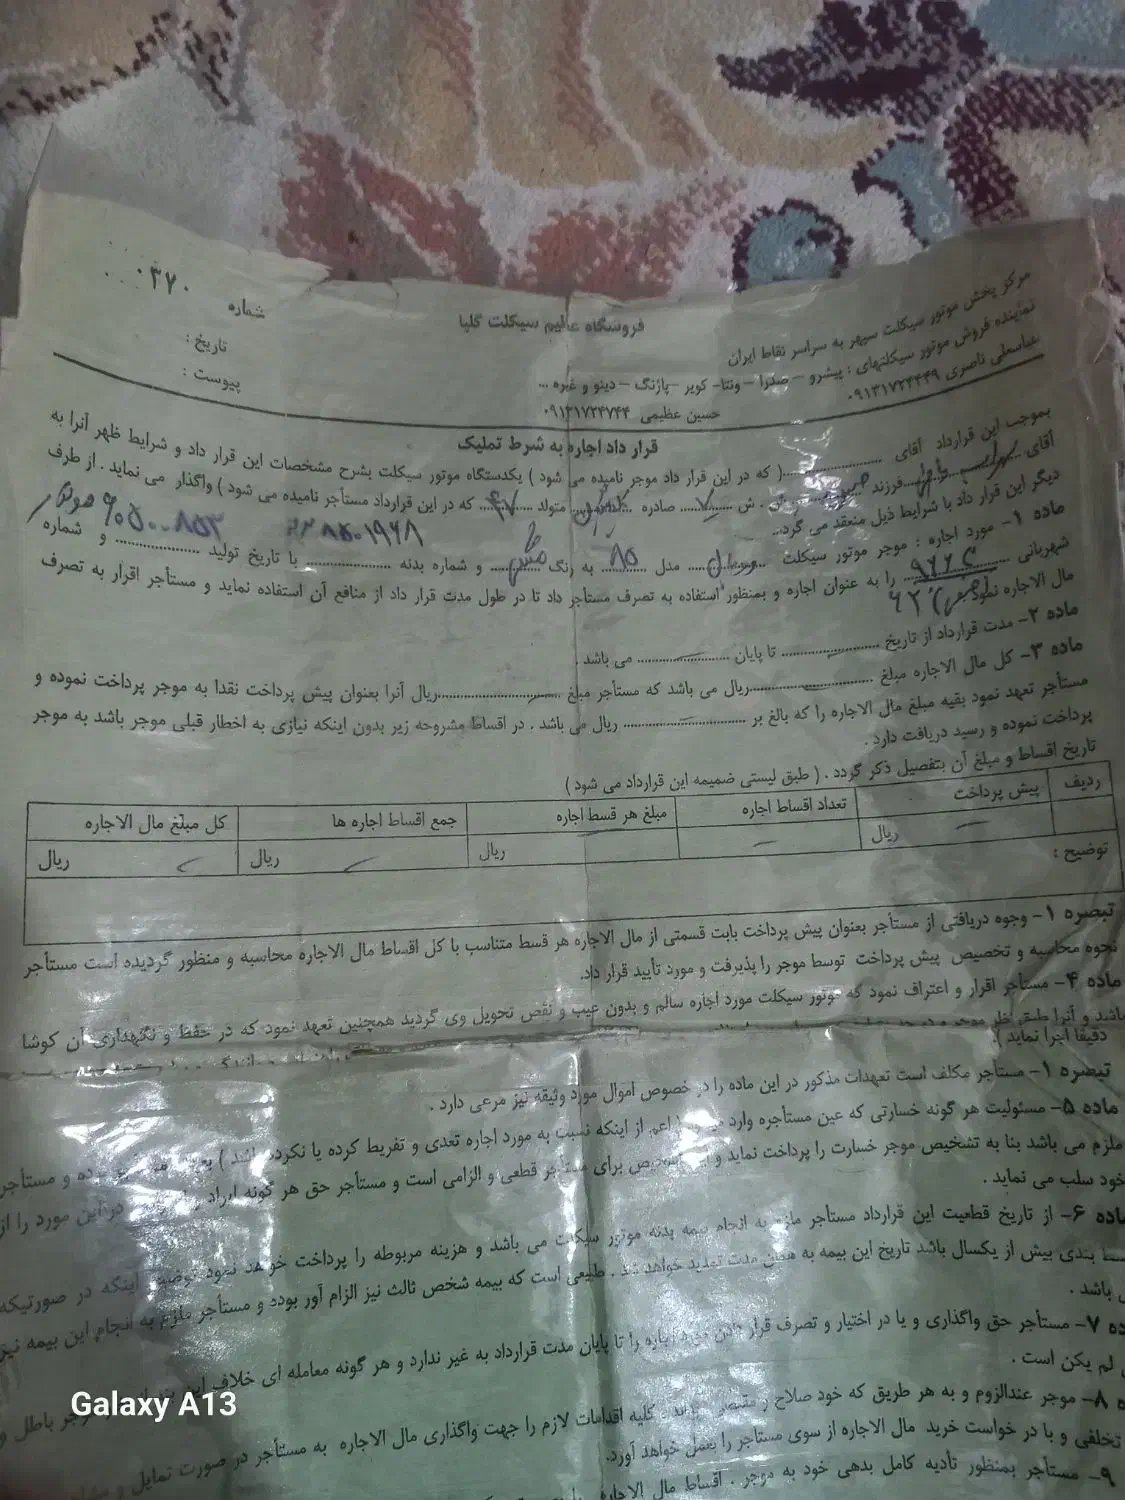 مرکز پخش موتور سیکلت سپهر به سراسر نقاط ایران
نماینده فروش موتور سیکلتهای : پیشرو – صدرا – ونتا – کویر – پاژنگ – دینو و غیره ...
عباسعلی ناصری ۰۹۱۳۱۷۲۴۴۴۹
حسین عظیمی ۰۹۱۳۱۷۲۴۷۴۴
فروشگاه عظیم سیکلت گلپا
شماره ۰۳۷۰
تاریخ :
پیوست :
قرار داد اجاره به شرط تملیک
بموجب این قرارداد آقای .................... ( که در این قرار داد موجر نامیده می شود ) یکدستگاه موتور سیکلت بشرح مشخصات این قرار داد و شرایط ظهر آنرا به
آقای فرزند ش . ش ۷ صادره متولد ۴۷ که در این قرارداد مستأجر نامیده می شود ) واگذار می نماید . از طرف
دیگر این قرار داد با شرایط ذیل منعقد می گردد.
ماده ۱- مورد اجاره : موجر موتور سیکلت مدل ۸۵ به رنگ مشکی و شماره بدنه ۸۵۰۱۹۶۸ با تاریخ تولید .................... و شماره
شهربانی را به عنوان اجاره و بمنظور استفاده به تصرف مستأجر داد تا در طول مدت قرار داد از منافع آن استفاده نماید و مستأجر اقرار به تصرف
مال الاجاره نمود
ماده ۲- مدت قرارداد از تاریخ .................... تا پایان .................... می باشد .
ماده ۳- کل مال الاجاره مبلغ .................... ریال می باشد که مستأجر مبلغ .................... ریال آنرا بعنوان پیش پرداخت نقدا به موجر پرداخت نموده و
مستأجر تعهد نمود بقیه مبلغ مال الاجاره را که بالغ بر .................... ریال می باشد . در اقساط مشروحه زیر بدون اینکه نیازی به اخطار قبلی موجر باشد به موجر
پرداخت نموده و رسید دریافت دارد .
تاریخ اقساط و مبلغ آن بتفصیل ذکر گردد . ( طبق لیستی ضمیمه این قرارداد می شود )
ردیف پیش پرداخت تعداد اقساط اجاره مبلغ هر قسط اجاره جمع اقساط اجاره ها کل مبلغ مال الاجاره
ریال ریال ریال ریال
توضیح :
تبصره ۱- وجوه دریافتی از مستأجر بعنوان پیش پرداخت بابت قسمتی از مال الاجاره هر قسط متناسب با کل اقساط مال الاجاره محاسبه و منظور گردیده است مستأجر
نحوه محاسبه و تخصیص پیش پرداخت توسط موجر را پذیرفت و مورد تأیید قرار داد.
ماده ۴- مستأجر اقرار و اعتراف نمود که موتور سیکلت مورد اجاره سالم و بدون عیب و نقص تحویل وی گردید همچنین تعهد نمود که در حفظ و نگهداری آن کوشا
باشد و آنرا طبق
دقیقا اجرا نماید ).
تبصره ۱- مستأجر مکلف است تعهدات مذکور در این ماده را در خصوص اموال مورد وثیقه نیز مرعی دارد .
ماده ۵- مسئولیت هر گونه خسارتی که عین مستأجره وارد ( اعم از اینکه نسبت به مورد اجاره تعدی و تفریط کرده یا نکرده باشد ) و مستأجر
ملزم می باشد بنا به تشخیص موجر خسارت را پرداخت نماید و برای مستأجر قطعی و الزامی است و مستأجر حق هر گونه ایراد در این مورد را از
خود سلب می نماید .
ماده ۶- از تاریخ قطعیت این قرارداد مستأجر ملزم به انجام بیمه بدنه موتور سیکلت می باشد و هزینه مربوطه را پرداخت خواهد نمود توضیح اینکه در صورتیکه
بندی بیش از یکسال باشد تاریخ این بیمه به همان مدت تمدید خواهد شد . طبیعی است که بیمه شخص ثالث نیز الزام آور بوده و مستأجر ملزم به انجام این بیمه نیز
باشد .
ماده ۷- مستأجر حق واگذاری و یا در اختیار و تصرف قرار دادن مورد اجاره را تا پایان مدت قرارداد به غیر ندارد و هر گونه معامله ای خلاف این باطل و
لم یکن است .
۸- موجر عندالزوم و به هر طریق که خود صلاح و کلیه اقدامات لازم را جهت واگذاری مال الاجاره به مستأجر در صورت تمایل
تخلفی و یا در خواست خرید مال الاجاره از سوی مستأجر را بعمل خواهد آورد.
۹- مستأجر بمنظور تأدیه کامل بدهی خود به موجر . اقساط مال الاجاره
Galaxy A13